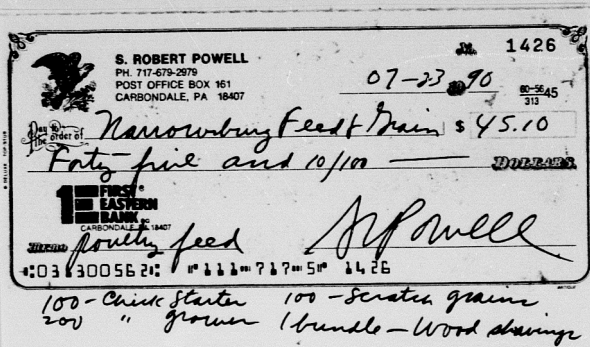 S. ROBERT POWELL
PH. 717-679-2979
POST OFFICE BOX 161
CARBONDALE, PA 18407
No. 1426
07-23 19 90
60-5645
313
Pay to the order of Narrowsburg Feed & Grain $ 45.10
Forty-five and 10/100 DOLLARS
FIRST EASTERN BANK
CARBONDALE, PA 18407
MEMO Poultry feed SR Powell
⑆031300562⑆ ⑈111⑉717⑉5⑈ 1426
100 - Chick Starter 100 - Scratch grains
200 " grower 1 bundle - Wood shavings